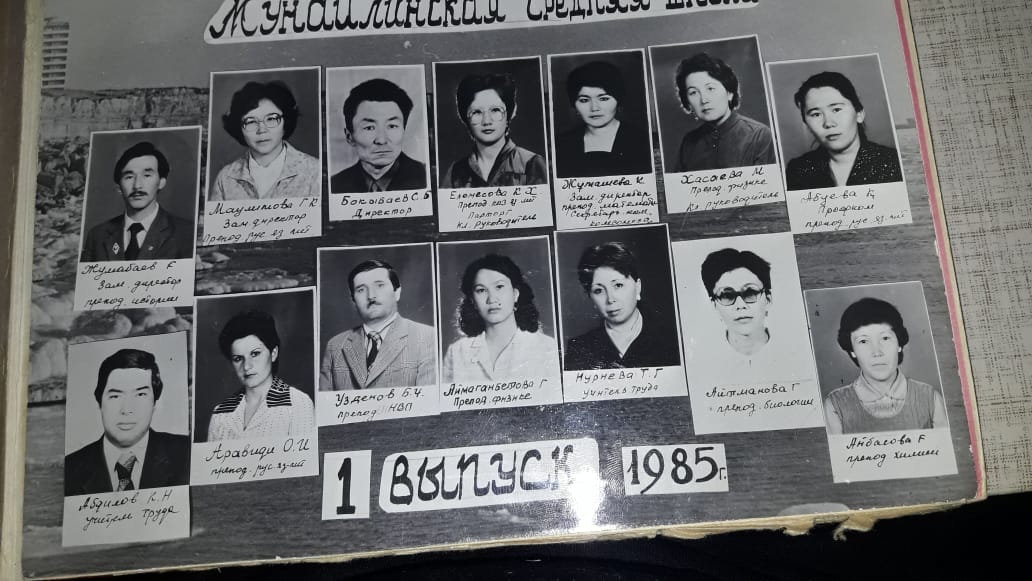 Мунайлинская средняя школа
Жумабаев Е
Зам. директор
препод. истории
Маулимова Г К
Зам. директор
Препод рус яз лит
Бокыбаев С. Б
Директор
Еленесова К. Х.
Препод каз яз лит
Парторг
Кл. руководитель
Жумашева К.
Зам. директор
препод. математ
Секретарь ком.
комсомола
Хасаева М
Препод физике
Кл. руководитель
Абуева К
Профком
препод рус. яз. лит
Абдилов К. Н
учитель труда
Аравиди О. И
препод. рус яз-лит
Узденов Б. Ч.
препод. НВП
Аймаганбетова Г
Препод. физике
Нурнева Т. Г
учитель труда
Айтманова Г
препод. биологии
Айбасова Г
препод химии
1 ВЫПУСК 1985г.